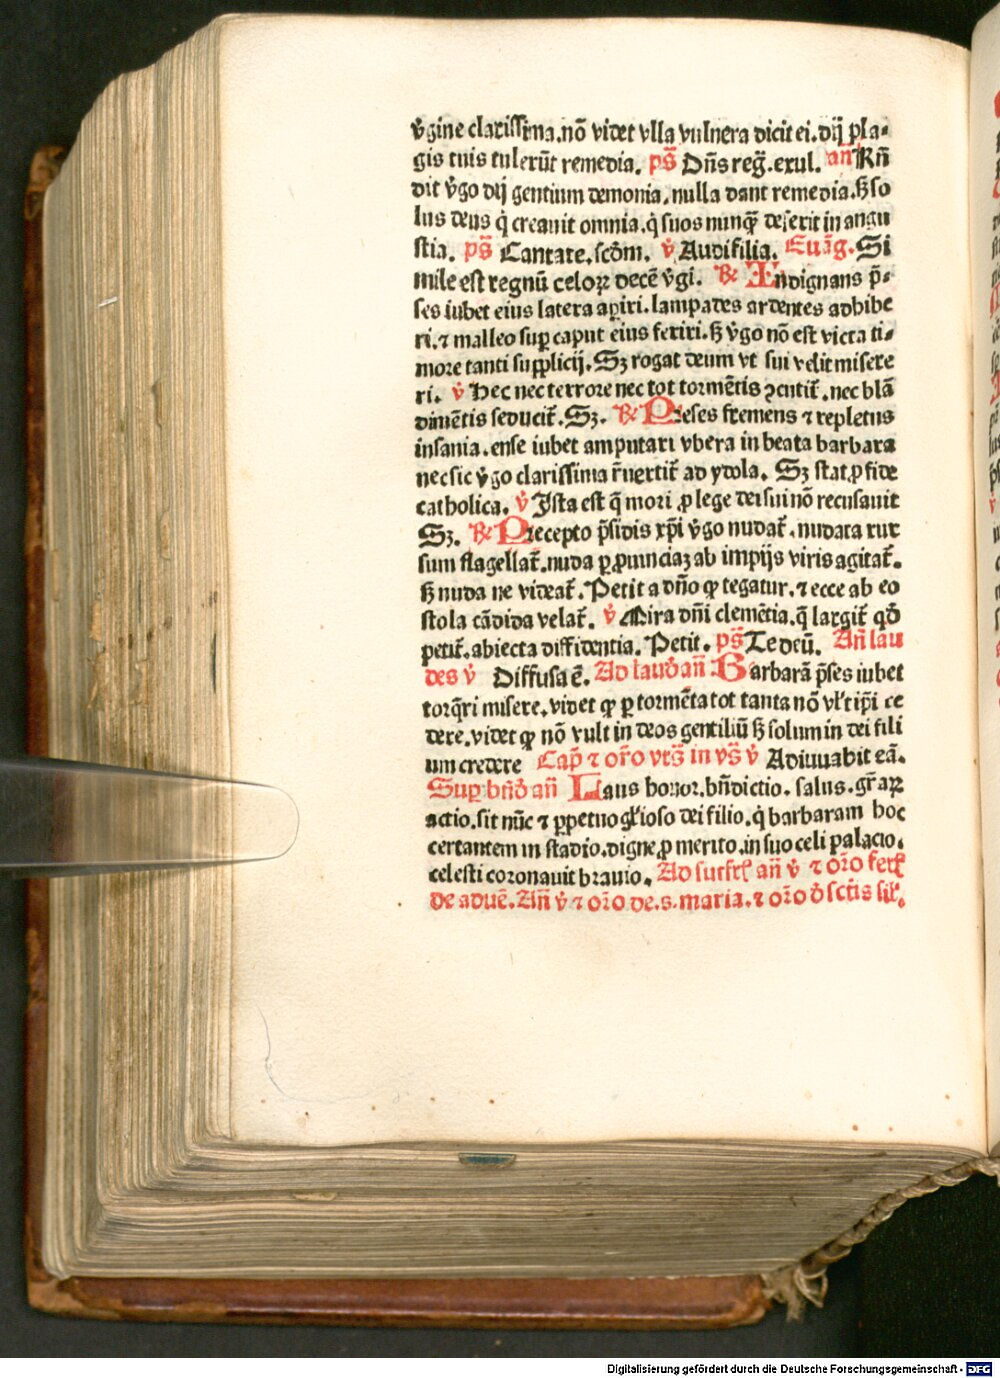 v̓gine clarissima.nō videt vlla vulnera dicit ei.dij pla⸗
gis tuis tulerūt remedia. ps̄ Dn̄s reḡ.exul. an̄ Rn̄
dit v̓go dij gentium demonia.nulla dant remedia.ꝸ so
lus deus q̇ creauit omnia.q̇ suos nunqꝫ deserit in angu
stia. ps̄ Cantate.scḋm. v̓ Audifilia. Euāg. Si
mile est regnū celoꝝ decē v̓gi. ℟ Indignans p̄⸗
ses iubet eius latera apiri.lampades ardentes adhibe
ri.⁊ malleo suꝑ caput eius feriri.ꝸ v̓go nō est victa ti⸗
more tanti supplicij. Sꝫ rogat deum vt sui velit misere
ri. v̓ Hec nec terrore nec tot tormētis ꝯcutit᷑.nec blā
dimētis seducit᷑. Sꝫ. ℟ Preses fremens ⁊ repletus
insania.ense iubet amputari vbera in beata barbara
nec sic v̓go clarissima r̄uertit᷑ ad ydola. Sꝫ stat ꝓ fide
catholica. v̓ Ista est q̄ mori ꝓ lege dei sui nō recusauit
Sꝫ. ℟ Precepto p̄sidis xp̄i v̓go nudat᷑.nudata rur
sum flagellat᷑.nuda ꝑ ꝓuinciaꝫ ab impijs viris agitat᷑.
ꝸ nuda ne videat᷑. Petit a dn̄o ꝙ tegatur.⁊ ecce ab eo
stola cādida velat᷑. v̓ Mira dn̄i clemētia.q̄ largit᷑ qḋ
petit᷑.abiecta diffidentia. Petit. ps̄ Te deū. An̄ lau
des v̓ Diffusa ē. Ad lauḋ an̄ Barbarā p̄ses iubet
torq̄ri misere.videt ꝙ ꝑ tormēta tot tanta nō vl̓t ip̄i ce
dere.videt ꝙ nō vult in deos gentiliū ꝸ solum in dei fili
um credere Cap̄ ⁊ or̄o vts̄ in vs̄ v̓ Adiuuabit eā.
Suꝑ bn̄ḋ an̄ Laus honor.bn̄dictio.salus.gr̄aꝝ
actio.sit nūc ⁊ ꝑpetuo gl̓ioso dei filio.q̇ barbaram hoc
certantem in stadio.digne ꝓ merito.in suo celi palacio.
celesti coronauit brauio. Ad suffrꝭ an̄ v̓ ⁊ or̄o ferꝭ
de aduē. An̄ v̓ ⁊ or̄o de.s.maria.⁊ or̄o ḋ sctīs sil̓.
Digitalisierung gefördert durch die Deutsche Forschungsgemeinschaft - DFG